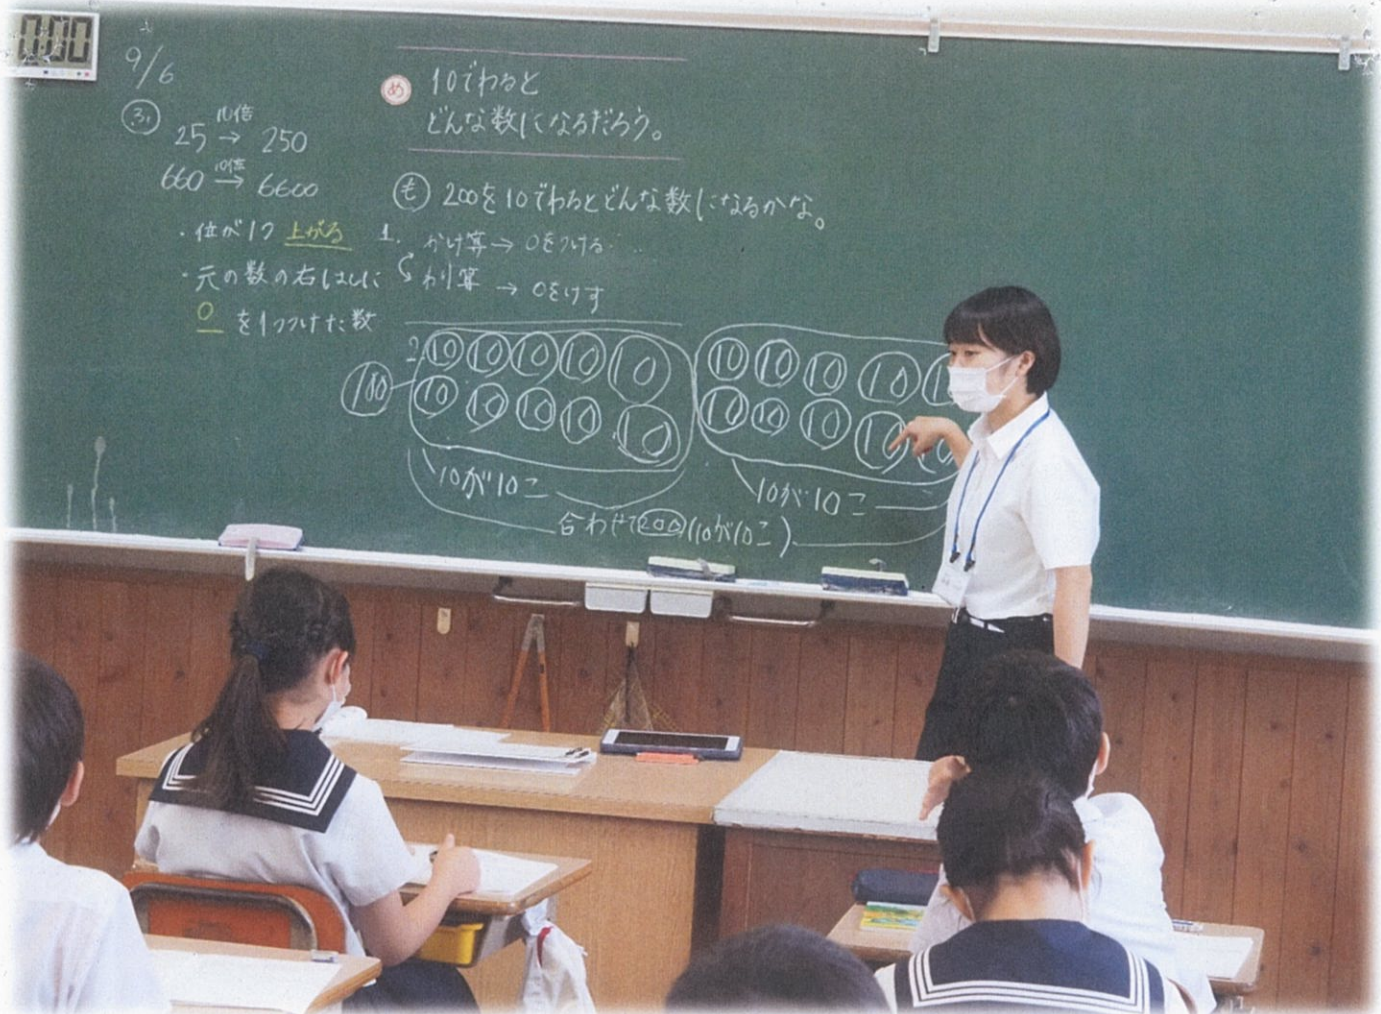 9/6
ふ
25 10倍→ 250
660 10倍→ 6600
・位が1つ 上がる
・元の数の右はしに
0 を1つつけた数
め 10でわると
どんな数になるだろう。
も 200を10でわるとどんな数になるかな。
1. かけ算→0をつける…
わり算→0をけす
2. 10 10 10 10 10 10 10 10 10
100 10 10 10 10 10 10 10 10 10
10が10こ 10が10こ
合わせて200(10が10こ)